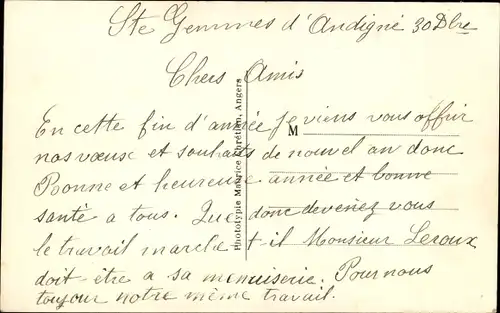 Ste Gemmes d'Andigné 30 Dbre
Chers Amis
En cette fin d'année je viens vous offrir
nos vœux et souhaits de nouvel an donc
Bonne et heureuse année et bonne
santé a tous. Que donc devenez vous
le travail marche t-il Monsieur Leroux
doit être a sa menuiserie. Pour nous
toujour notre même travail.
M
Phototypie Maurice Chrétien, Angers